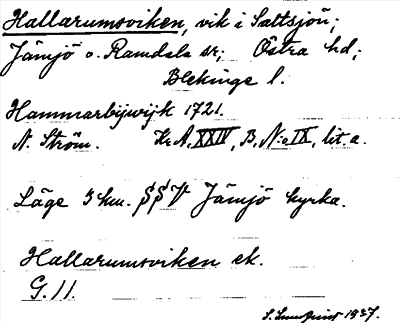 Hallarumsviken, vik i Saltsjön;
Jämjö o. Ramdala sr; Östra hd;
Blekinge l.
Hammarbijwijk 1721.
N. Ström. Kr.A. XXIV, B. N:o IX, lit. a.
Läge 3 km. SSV Jämjö kyrka.
Hallarumsviken ek.
G. 11.
S. Lundquist 1937.